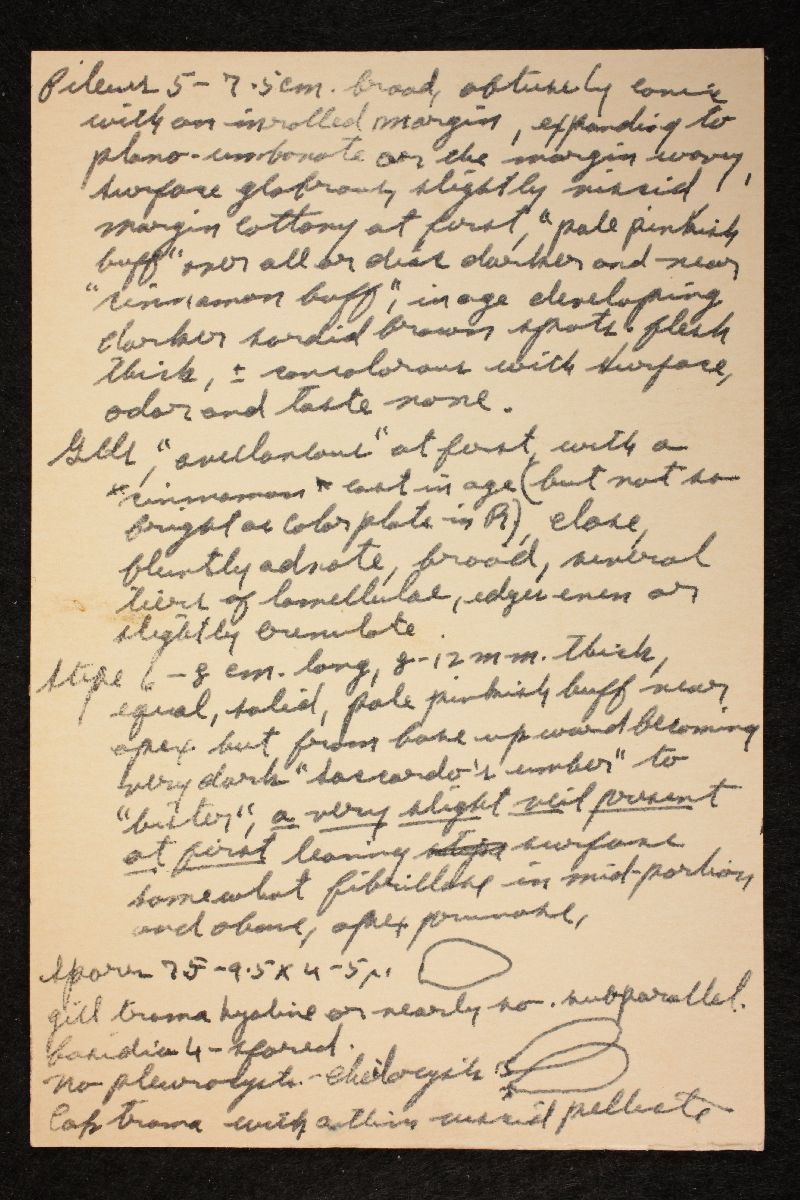 Pileus 5-7.5 cm. broad, obtusely conic
with an inrolled margin, expanding to
plano-umbonate or the margin wavy,
surface glabrous, slightly viscid,
margin cottony at first, "pale pinkish
buff" over all or disc darker and near
"cinnamon buff", in age developing
darker sordid brown spots. flesh
thick, ± concolorous with surface,
odor and taste none.
Gills, "avellaneous" at first, with a
"cinnamon" cast in age (but not so
bright as color plate in R), close,
bluntly adnate, broad, several
tiers of lamellulae, edges even or
slightly crenulate
Stipe 6-8 cm. long, 8-12 mm. thick,
equal, solid, pale pinkish buff near
apex but from base upward becoming
very dark "saccardo's umber" to
"bister", a very slight veil present
at first leaving stipe surface
somewhat fibrillose in mid-portion
and above, apex pruinose,
Spores 7.5-9.5 x 4-5µ.
gill trama hyaline or nearly so. subparallel.
basidia 4-spored.
no pleurocysts.-cheilocysts
Cap trama with a thin viscid pellicle